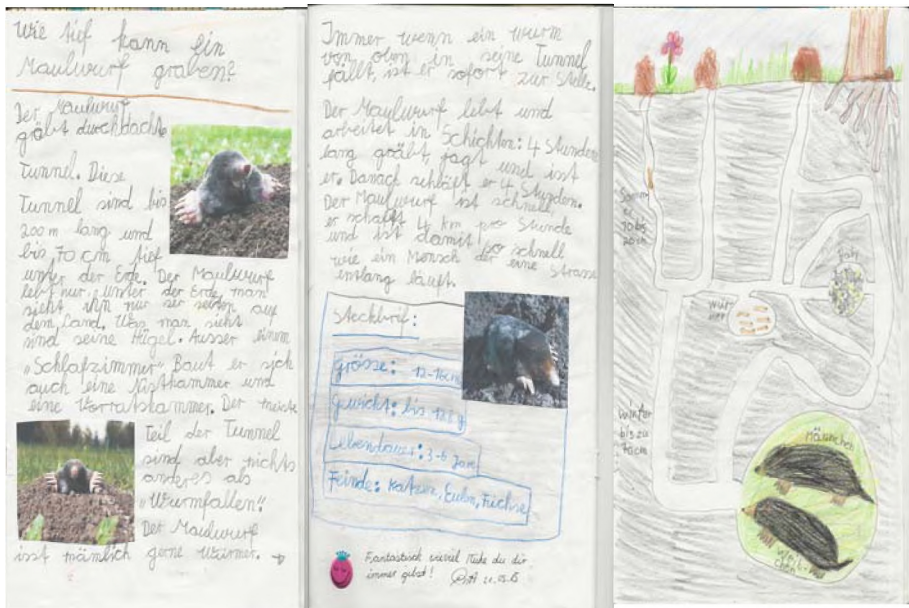 Wie tief kann ein
Maulwurf graben?
Der Maulwurf
gräbt durchdachte
Tunnel. Diese
Tunnel sind bis
200 m lang und
bis 70 cm tief
unter der Erde. Der Maulwurf
lebt nur unter der Erde, man
sieht ihn nur ser selten auf
dem Land. Was man sieht
sind seine Hügel. Ausser einem
"Schlafzimmer" Baut er sich
auch eine Nistkammer und
eine Vorratskammer. Der meiste
Teil der Tunnel
sind aber nichts
anderes als
"Wurmfallen".
Der Maulwurf
isst nämlich gerne Würmer. →
Immer wenn ein wurm
von oben in seine Tunnel
fällt, ist er sofort zur Stelle.
Der Maulwurf lebt und
arbeitet in Schichten: 4 Stunden
lang gräbt, jagt und isst
er. Danach schläft er 4 Stunden.
Der Maulwurf ist schnell,
er schafft 4 km pro Stunde
und ist damit so schnell
wie ein Mensch der eine Strasse
entlang läuft.
Steckbrif:
Grösse: 12-16cm
Gewicht: bis 128 g
Lebensdauer: 3-6 Jare
Feinde: Katzen, Eulen, Füchse
Fantastisch wieviel Mühe du dir
immer gibst!
Somm
er
10 bis
20 cm
wür
mer
winter
bis zu
70cm
Mänchen
Weib
chen